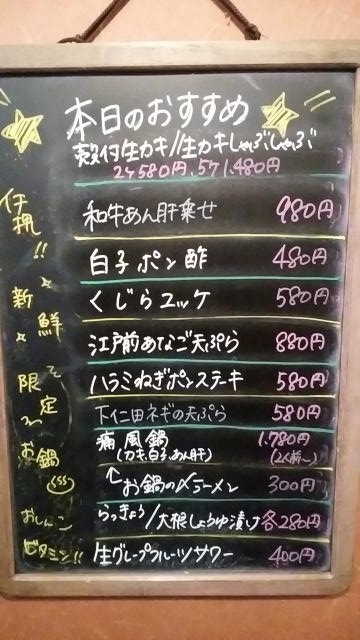 本日のおすすめ
殻付生カキ//生カキしゃぶしゃぶ
2ケ580円, 5ケ1,480円
和牛あん肝乗せ 980円
白子ポン酢 480円
くじらユッケ 580円
江戸前あなご天ぷら 880円
ハラミねぎポンステーキ 580円
下仁田ネギの天ぷら 580円
痛風鍋 1,780円
(カキ,白子,あん肝) (2人前〜)
↑お鍋の〆ラーメン 300円
らっきょう/大根しょうゆ漬け 各280円
生グレープフルーツサワー 400円
新鮮
限定
お鍋
おしんこ
ビタミン!!